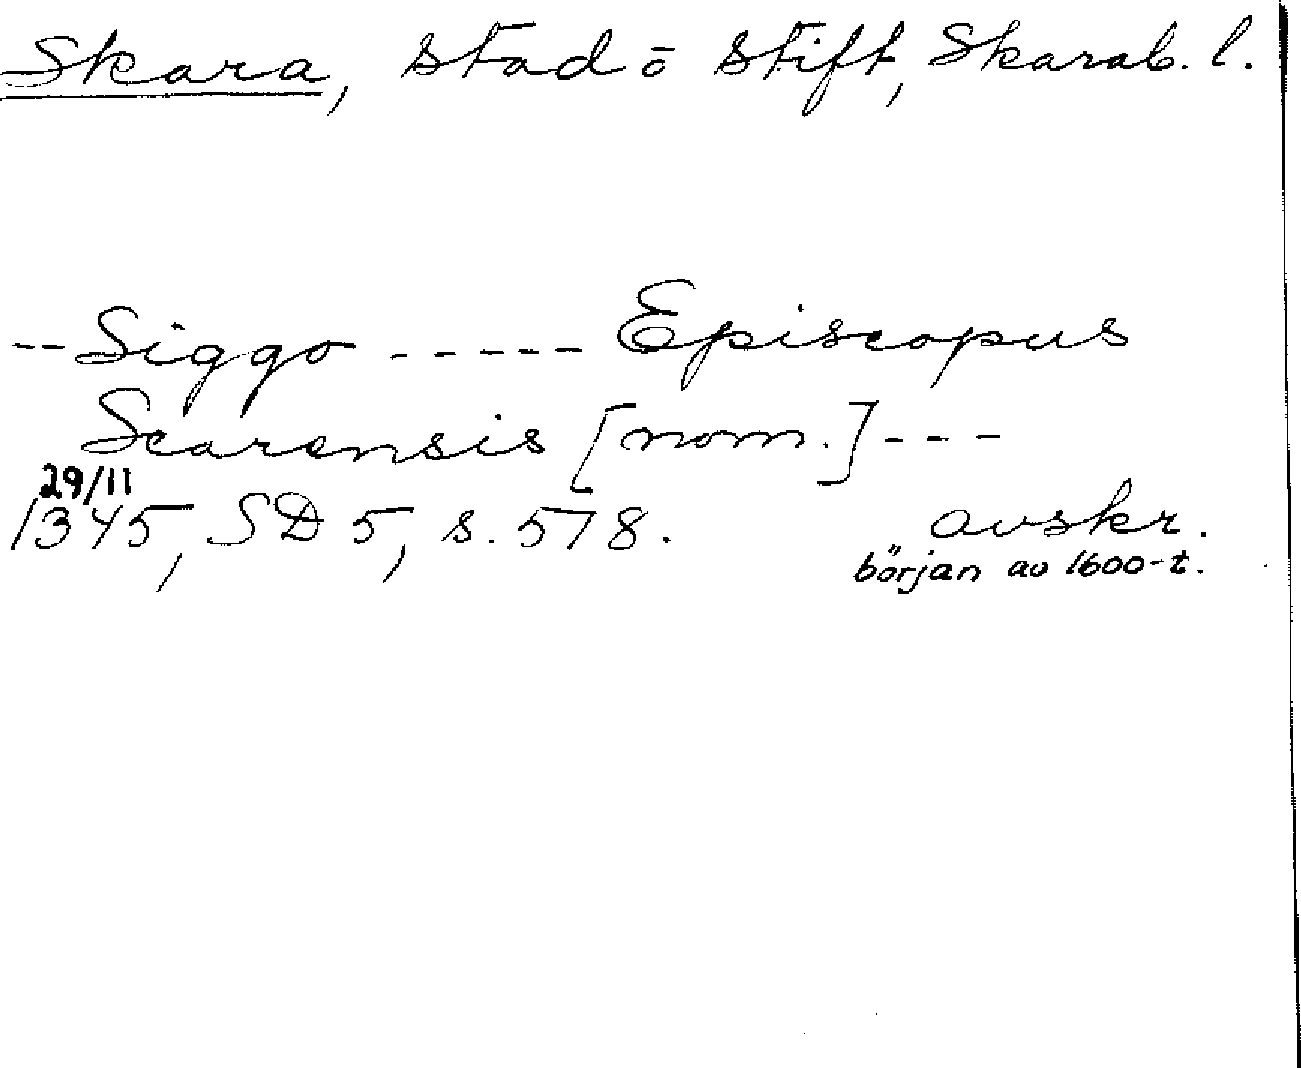 Skara, stad o stift, Skarab. l.
-- Siggo ----- Episcopus
Scarensis [nom.] ---
29/11
1345, SD 5, s. 578. avskr.
början av 1600-t.